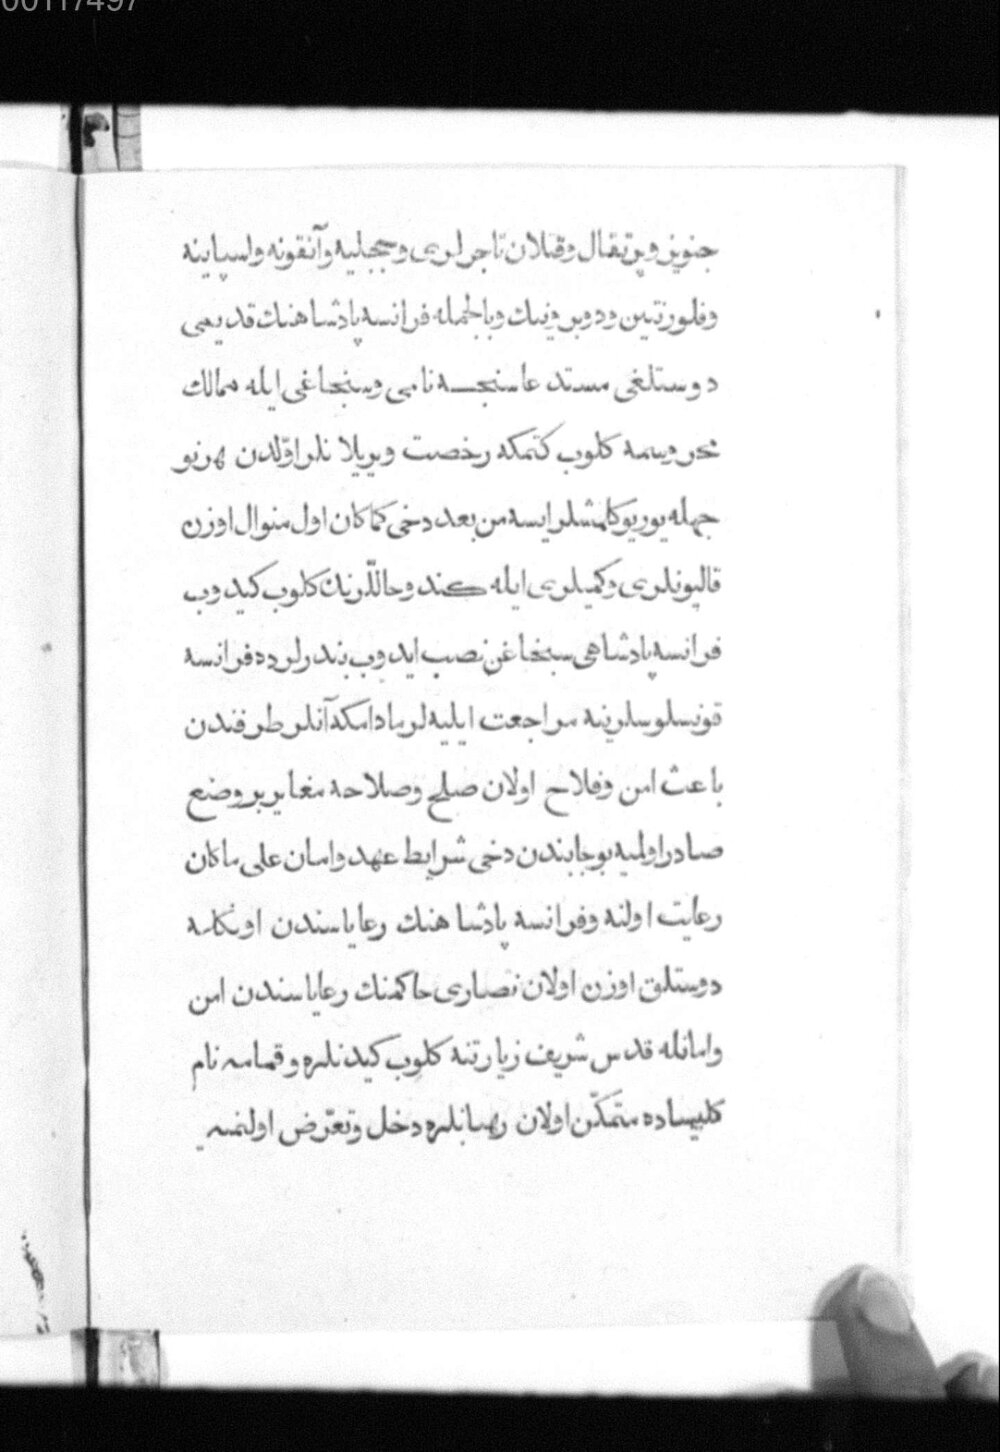 00117497
جنويز و پرتقال و قتلان تاجرلرى و چچليه و آنقونه و اسپاينه
و فلورنتين و دوبرونيك و بالجمله فرانسه پادشاهنك قديمى
دوستلغى مستدعاسنجه نامى و سنجاغى ايله ممالك
محروسمه كلوب كتمكه رخصت ويريلانلر اوّلدن هرنو
جهله يوريوكلمشلر ايسه من بعد دخى كماكان اول منوال اوزره
قاليونلرى و كميلرى ايله كندو حاللّرنك كلوب كيدوب
فرانسه پادشاهى سنجاغن نصب ايدوب بندرلرده فرانسه
قونسلوسلرينه مراجعت ايليه لر مادامكه آنلر طرفندن
باعث امن و فلاح اولان صلح و صلاحه مغاير بر وضع
صادر اولميه بو جانبدن دخى شرايط عهد و امان على ماكان
رعايت اولنه و فرانسه پادشاهنك رعاياسندن اونكله
دوستلق اوزره اولان نصارى حاكمنك رعاياسندن امن
و امانله قدس شريف زيارتنه كلوب كيدنلره و قمامه نام
كليساده متمكّن اولان رهبانلره دخل و تعرّض اولنميه